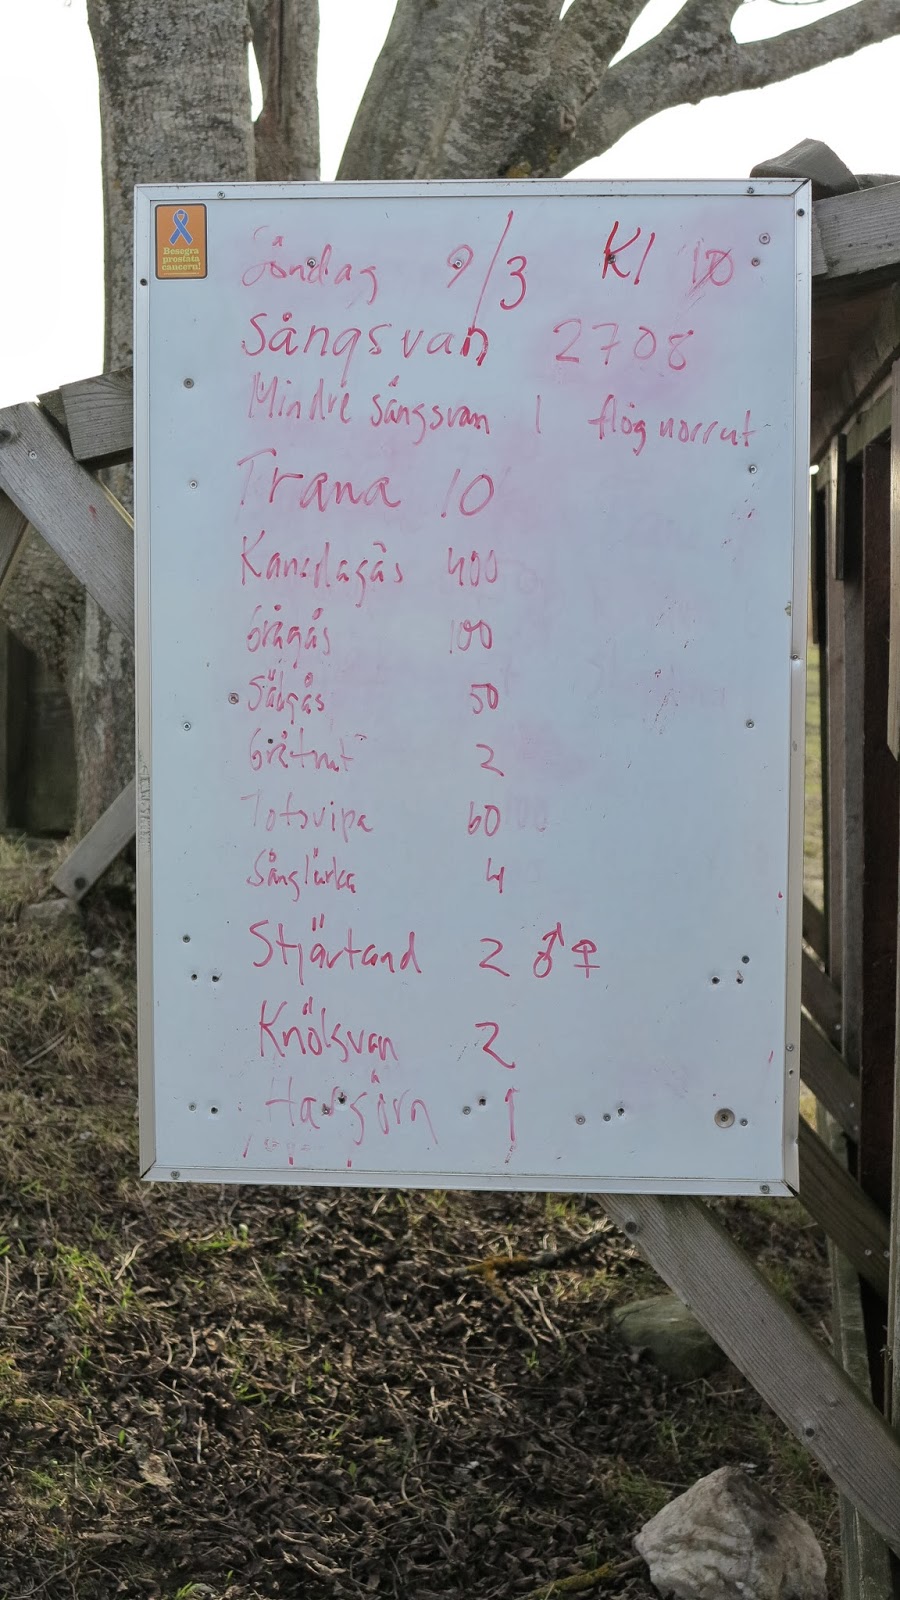 Besegra
prostata
cancern!
Söndag 9/3 Kl 10
Sångsvan 2708
Mindre sångsvan 1 flög norrut
Trana 10
Kanadagås 400
Grågås 100
Sädgås 50
Gråtrut 2
Tofsvipa 60
Sånglärka 4
Stjärtand 2 ♂♀
Knölsvan 2
Havsörn 1